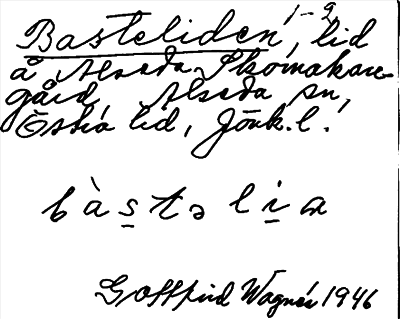 1-2
Basteliden, lid
å Alseda Skomakare-
gård, Alseda sn,
Östra hd, Jönk. l.
bàstə li
Gottfrid Wagnér 1946